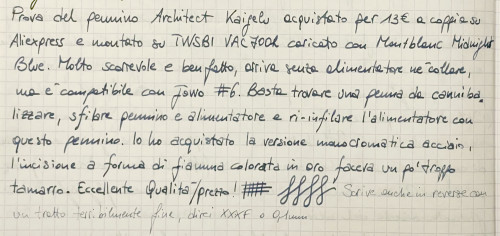 Prova del pennino Architect Kaigelu acquistato per 13€ a coppia su
Aliexpress e montato su TWSBI VAC 700R caricato con Montblanc Midnight
Blue. Molto scorrevole e ben fatto, arriva senza alimentatore nè collare,
ma è compatibile con Jowo #6. Basta trovare una penna da canniba
lizzare, sfilare pennino e alimentatore e ri-infilare l'alimentatore con
questo pennino. Io ho acquistato la versione monocromatica acciaio,
l'incisione a forma di fiamma colorata in oro faceva un po' troppo
tamarro. Eccellente Qualità/prezzo! Scrive anche in reverse con
un tratto terribilmente fine, direi XXXF o 0,1mm